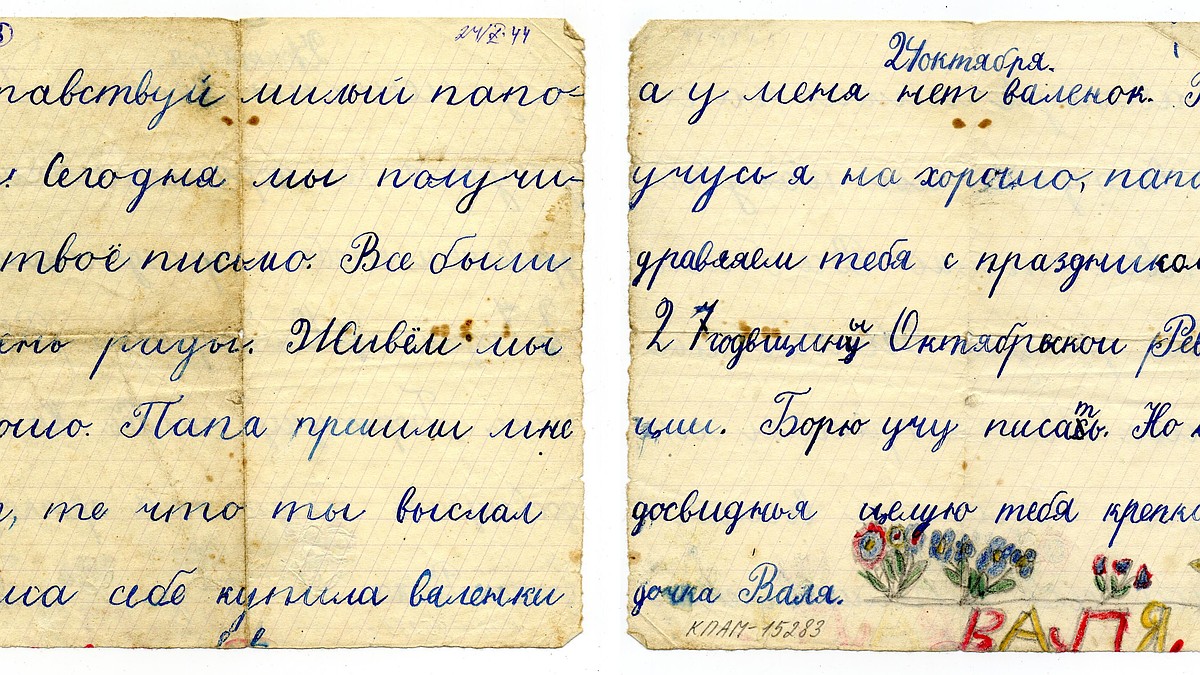 24/X-44
равствуй милый папо-
! Сегодня мы получи-
твоё письмо. Все были
ень рады. Живём мы
ошо. Папа пришли мне
, те что ты выслал
иса себе купила валенки
24 октября.
а у меня нет валенок.
учусь я на хорошо, папа
дравляем тебя с праздником
27 годовщины Октябрьской Рев
ции. Борю учу писать. Но
досвиднья целую тебя крепко
дочка Валя.
КПАМ-15283
ВАЛЯ.